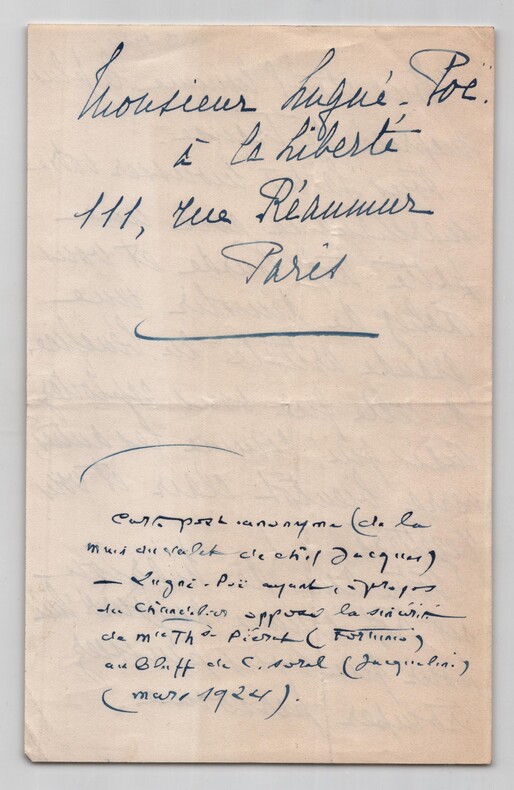 Monsieur Lugné-Poë.
à la Liberté
111, rue Réaumur
Paris
Carte post anonyme (de la
main du valet de chef Jacques)
— Lugné-Poë ayant, à propos
du Chandelier opposé la sincérité
de Mlle Th. Piérat (Fortunio)
au Bluff de C. Sorel (Jacqueline)
(mars 1924).